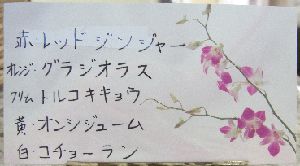 赤・レッドジンジャー
オレンジ・グラジオラス
クリム トルコキキョウ
黄・オンシジューム
白・コチョーラン